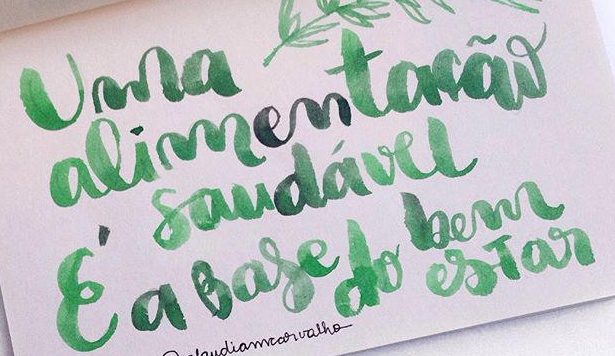 Uma
alimentação
saudável
É a base do bem
estar
@claudiamcarvalho